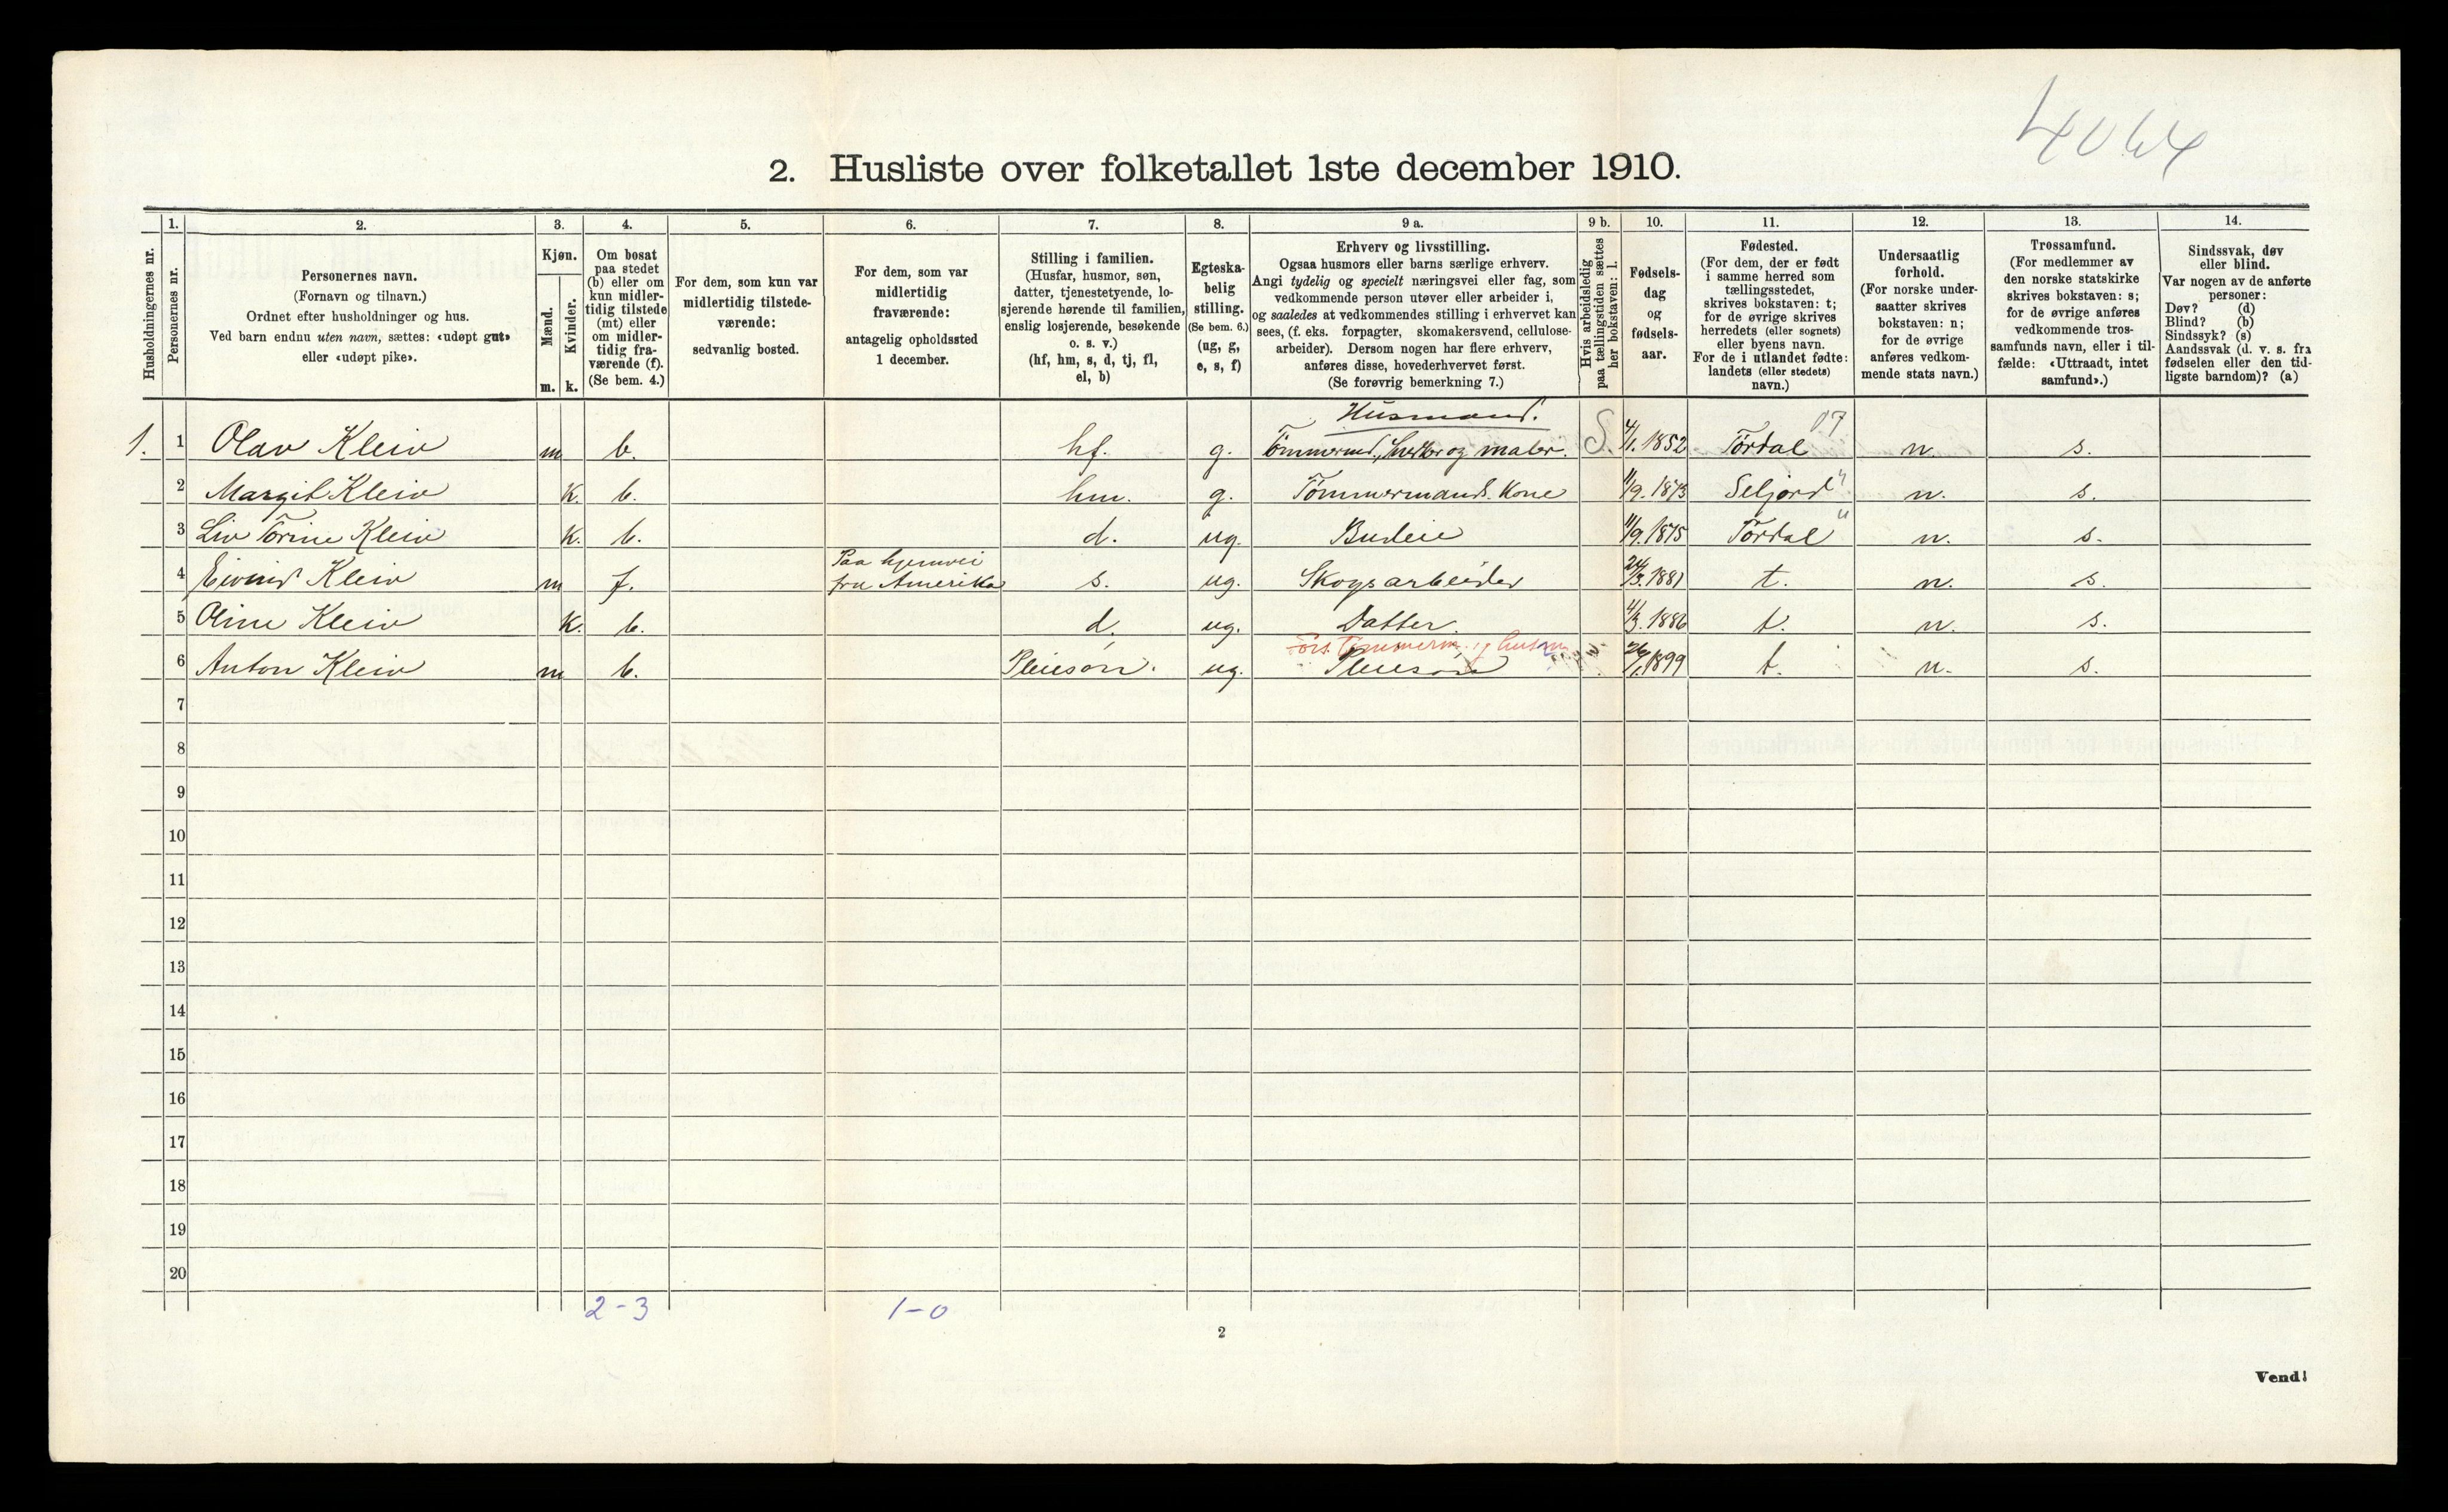 4064
2. Husliste over folketallet 1ste december 1910.
Husholdningernes nr.
1.
Personernes nr.
2.
Personernes navn.
(Fornavn og tilnavn.)
Ordnet efter husholdninger og hus.
Ved barn endnu uten navn, sættes: «udøpt gut»
eller «udøpt pike».
3.
Kjøn.
Mænd.
Kvinder.
m. k.
4.
Om bosat
paa stedet
(b) eller om
kun midler-
tidig tilstede
(mt) eller
om midler-
tidig fra-
værende (f).
(Se bem. 4.)
5.
For dem, som kun var
midlertidig tilstede-
værende:
sedvanlig bosted.
6.
For dem, som var
midlertidig
fraværende:
antagelig opholdssted
1 december.
7.
Stilling i familien.
(Husfar, husmor, søn,
datter, tjenestetyende, lo-
sjerende hørende til familien,
enslig losjerende, besøkende
o. s. v.)
(hf, hm, s, d, tj, fl,
el, b)
8.
Egteska-
belig
stilling.
(Se bem. 6.)
(ug, g,
e, s, f)
9 a.
Erhverv og livsstilling.
Ogsaa husmors eller barns særlige erhverv.
Angi tydelig og specielt næringsvei eller fag, som
vedkommende person utøver eller arbeider i,
og saaledes at vedkommendes stilling i erhvervet kan
sees, (f. eks. forpagter, skomakersvend, cellulose-
arbeider). Dersom nogen har flere erhverv,
anføres disse, hovederhvervet først.
(Se forøvrig bemerkning 7.)
9 b.
Hvis arbeidsledig
paa tællingstiden sættes
her bokstaven: l.
10.
Fødsels-
dag
og
fødsels-
aar.
11.
Fødested.
(For dem, der er født
i samme herred som
tællingsstedet,
skrives bokstaven: t;
for de øvrige skrives
herredets (eller sognets)
eller byens navn.
For de i utlandet fødte:
landets (eller stedets)
navn.)
12.
Undersaatlig
forhold.
(For norske under-
saatter skrives
bokstaven: n;
for de øvrige
anføres vedkom-
mende stats navn.)
13.
Trossamfund.
(For medlemmer av
den norske statskirke
skrives bokstaven: s;
for de øvrige anføres
vedkommende tros-
samfunds navn, eller i til-
fælde: «Uttraadt, intet
samfund».)
14.
Sindssvak, døv
eller blind.
Var nogen av de anførte
personer:
Døv? (d)
Blind? (b)
Sindssyk? (s)
Aandssvak (d. v. s. fra
fødselen eller den tid-
ligste barndom)? (a)
Husmand. 07
1. 1 Olav Kleiv m b. hf. g. Tømmermd, snedker og maler. S. 4/1. 1852 Tørdal n. s.
2 Margit Kleiv k. b. hm. g. Tømmermands Kone 11/9. 1873 Seljord " n. s.
3 Liv Torine Kleiv k. b. d. ug. Budeie 11/9. 1875 Tørdal " n. s.
Paa hjemvei
4 Eivind Kleiv m f. fra Amerika s. ug. Skogsarbeider 24/3. 1881 t. n. s.
5 Oline Kleiv k. b. d. ug. Datter. 4/3. 1886 t. n. s.
6 Anton Kleiv m b. Pleiesøn. ug. Pleiesøn 1899 t. n. s.
7
8
9
10
11
12
13
14
15
16
17
18
19
20
2-3 1-0
2
Vend!